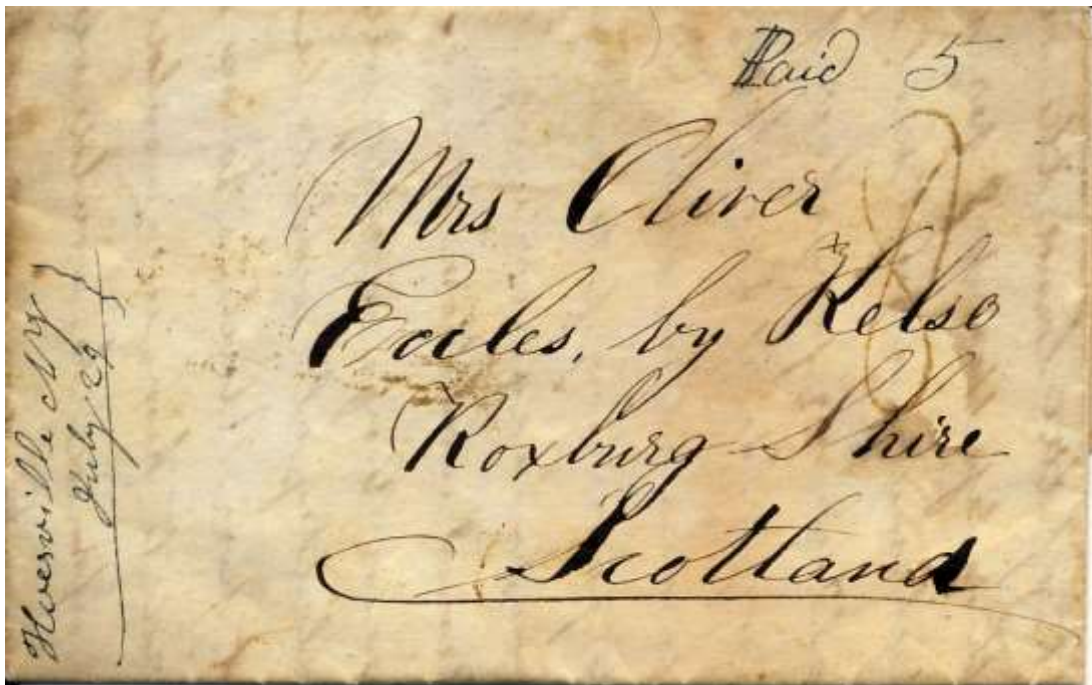 Paid 5
Mrs Oliver
Eccles, by Kelso
Roxburg Shire
Scotland
NY
July 29